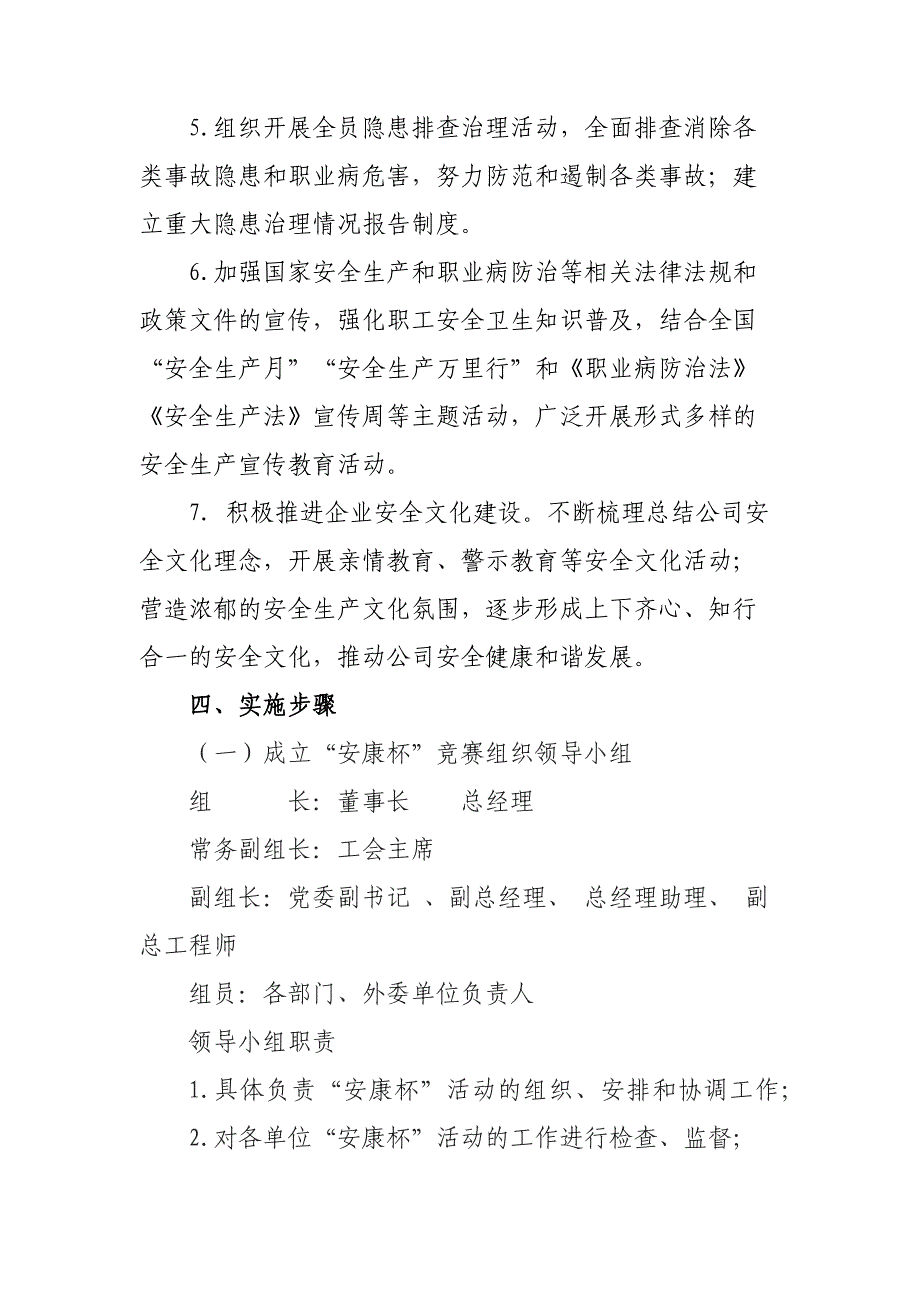 5.组织开展全员隐患排查治理活动，全面排查消除各
类事故隐患和职业病危害，努力防范和遏制各类事故；建
立重大隐患治理情况报告制度。
6.加强国家安全生产和职业病防治等相关法律法规和
政策文件的宣传，强化职工安全卫生知识普及，结合全国
“安全生产月”“安全生产万里行”和《职业病防治法》
《安全生产法》宣传周等主题活动，广泛开展形式多样的
安全生产宣传教育活动。
7. 积极推进企业安全文化建设。不断梳理总结公司安
全文化理念，开展亲情教育、警示教育等安全文化活动；
营造浓郁的安全生产文化氛围，逐步形成上下齐心、知行
合一的安全文化，推动公司安全健康和谐发展。
四、实施步骤
（一）成立“安康杯”竞赛组织领导小组
组　　　长：董事长　　总经理
常务副组长：工会主席
副组长：党委副书记 、副总经理、 总经理助理、 副
总工程师
组员：各部门、外委单位负责人
领导小组职责
1.具体负责“安康杯”活动的组织、安排和协调工作；
2.对各单位“安康杯”活动的工作进行检查、监督；